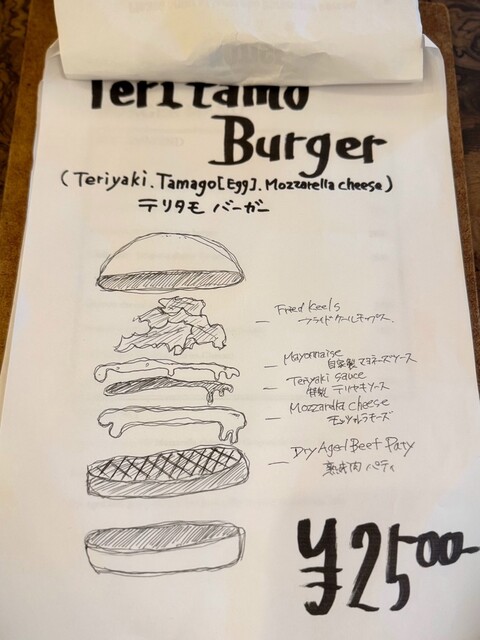 Teritamo
Burger
(Teriyaki.Tamago[Egg].Mozzarella cheese)
テリタモ バーガー
Fried Keels
フライドケールチップス.
Mayonnaise
自家製マヨネーズソース
Teriyaki sauce
特製 テリヤキソース
Mozzarella cheese
モッツァラチーズ
Dry Aged Beef Paty
熟成肉 パティ
¥2500-